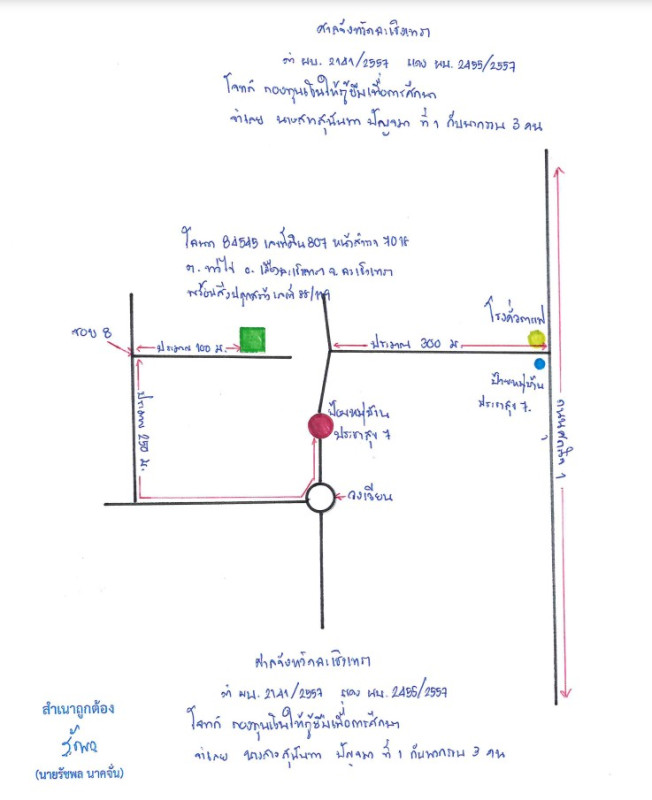 ศาลจังหวัดฉะเชิงเทรา
ดำ ผบ. 2141/2557 แดง ผบ. 2455/2557
โจทก์ กองทุนเงินให้กู้ยืมเพื่อการศึกษา
จำเลย นางสาวสุนันทา ที่ 1 กับพวกรวม 3 คน
โฉนด 84545 เลขที่ดิน 807 หน้าสำรวจ 7018
ต. ท่าไข่ อ. เมืองฉะเชิงเทรา จ. ฉะเชิงเทรา
พร้อมสิ่งปลูกสร้าง เลขที่
ซอย 8
ประมาณ 100 ม.
ประมาณ 300 ม.
โรงคั่วกาแฟ
ป้ายหมู่บ้าน
ประชาสุข 7.
ป้อมหมู่บ้าน
ประชาสุข 7
ประมาณ 250 ม.
วงเวียน
ถนน 1
ศาลจังหวัดฉะเชิงเทรา
ดำ ผบ. 2141/2557 แดง ผบ. 2455/2557
โจทก์ กองทุนเงินให้กู้ยืมเพื่อการศึกษา
จำเลย นางสาวสุนันทา ที่ 1 กับพวกรวม 3 คน
สำเนาถูกต้อง
(นายรัชพล นาคจั่น)